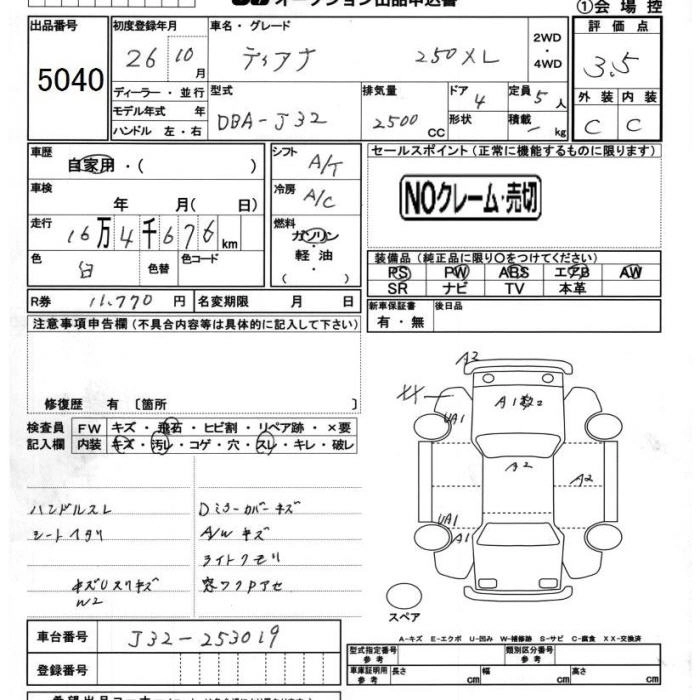 オークション出品申込書
①会場控
出品番号
5040
初度登録年月
26 10月
ディーラー・並行
モデル年式 年
ハンドル 左・右
車名・グレード
ティアナ 250XL
2WD
・
4WD
型式
DBA-J32
排気量
2500 CC
ドア 4
形状
定員 5人
積載 - kg
評価点
3.5
外装 内装
C C
車歴
自家用・( )
車検
年 月( 日)
走行
16万4千676km
色
白
色替
色コード
シフト
A/T
冷房
A/C
燃料
ガソリン
・
軽油
( )
セールスポイント(正常に機能するものに限ります)
NOクレーム・売切
装備品(純正品に限り○をつけてください)
PS PW ABS エアB AW
SR ナビ TV 本革
R券 11,770 円
名変期限 月 日
新車保証書
有・無
後日品
注意事項申告欄(不具合内容等は具体的に記入して下さい)
修復歴 有 〔箇所 〕
検査員
記入欄
FW キズ・飛石・ヒビ割・リペア跡・×要
内装 キズ・汚レ・コゲ・穴・スレ・キレ・破レ
ハンドルスレ
シートヘタリ
キズUスリキズ
W2
Dミラーカバーキズ
A/Wキズ
ライトクモリ
窓ワクPアセ
A2
A1
UA1
A2
A2
UA1
A1
スペア
A-キズ E-エクボ U-凹み W-補修跡 S-サビ C-腐食 XX-交換済
車台番号
J32-253019
登録番号
型式指定番号
参考
類別区分番号
参考
車庫証明用
参考
長さ cm
幅 cm
高さ cm
希望出品コーナー